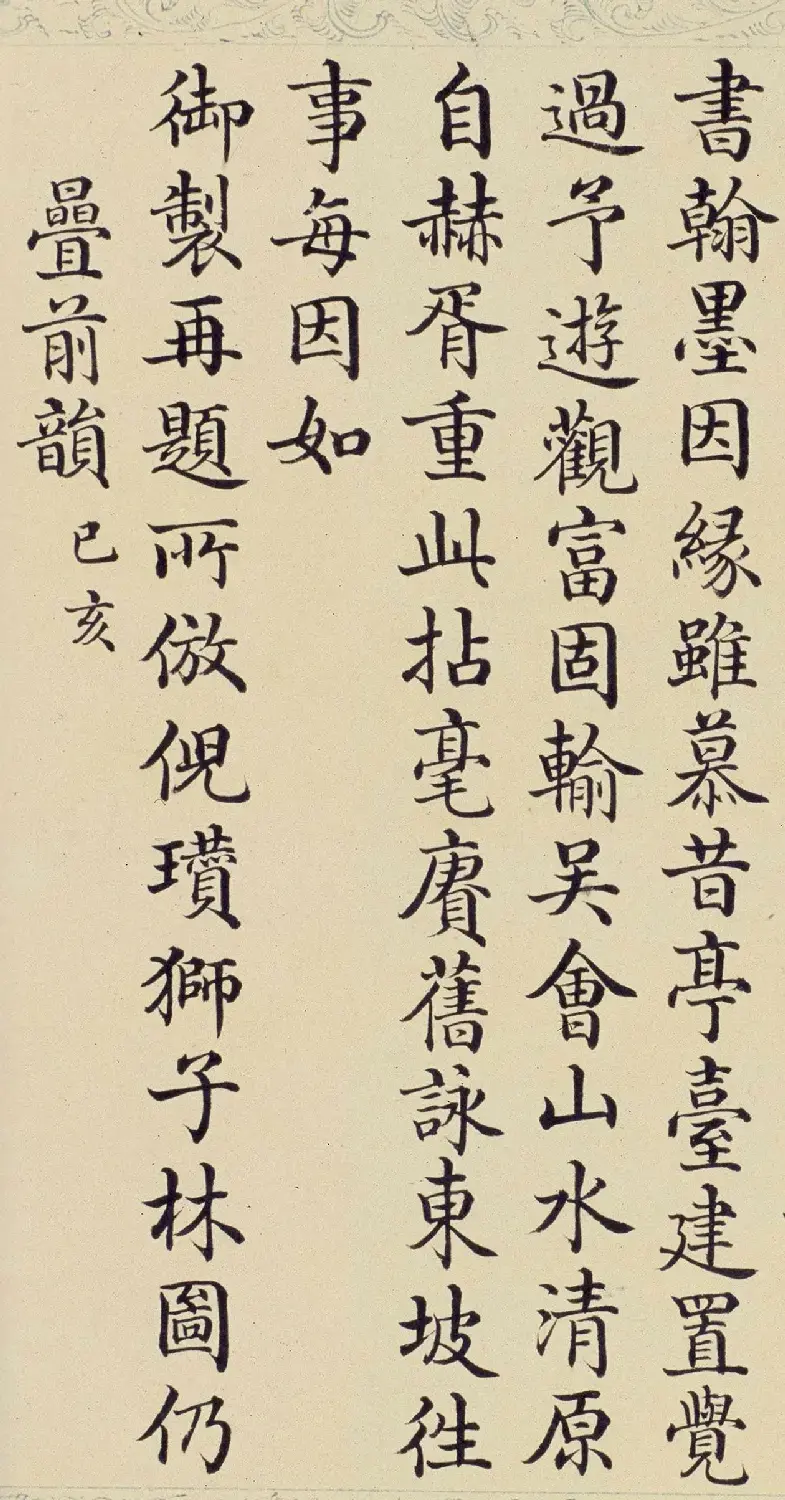 書翰墨因縁雖慕昔亭臺建置覺
過予遊觀富固輸吴會山水清原
自赫胥重此拈毫賡舊詠東坡徃
事每因如
御製再題所倣倪瓚獅子林圖仍
疊前韻 已亥